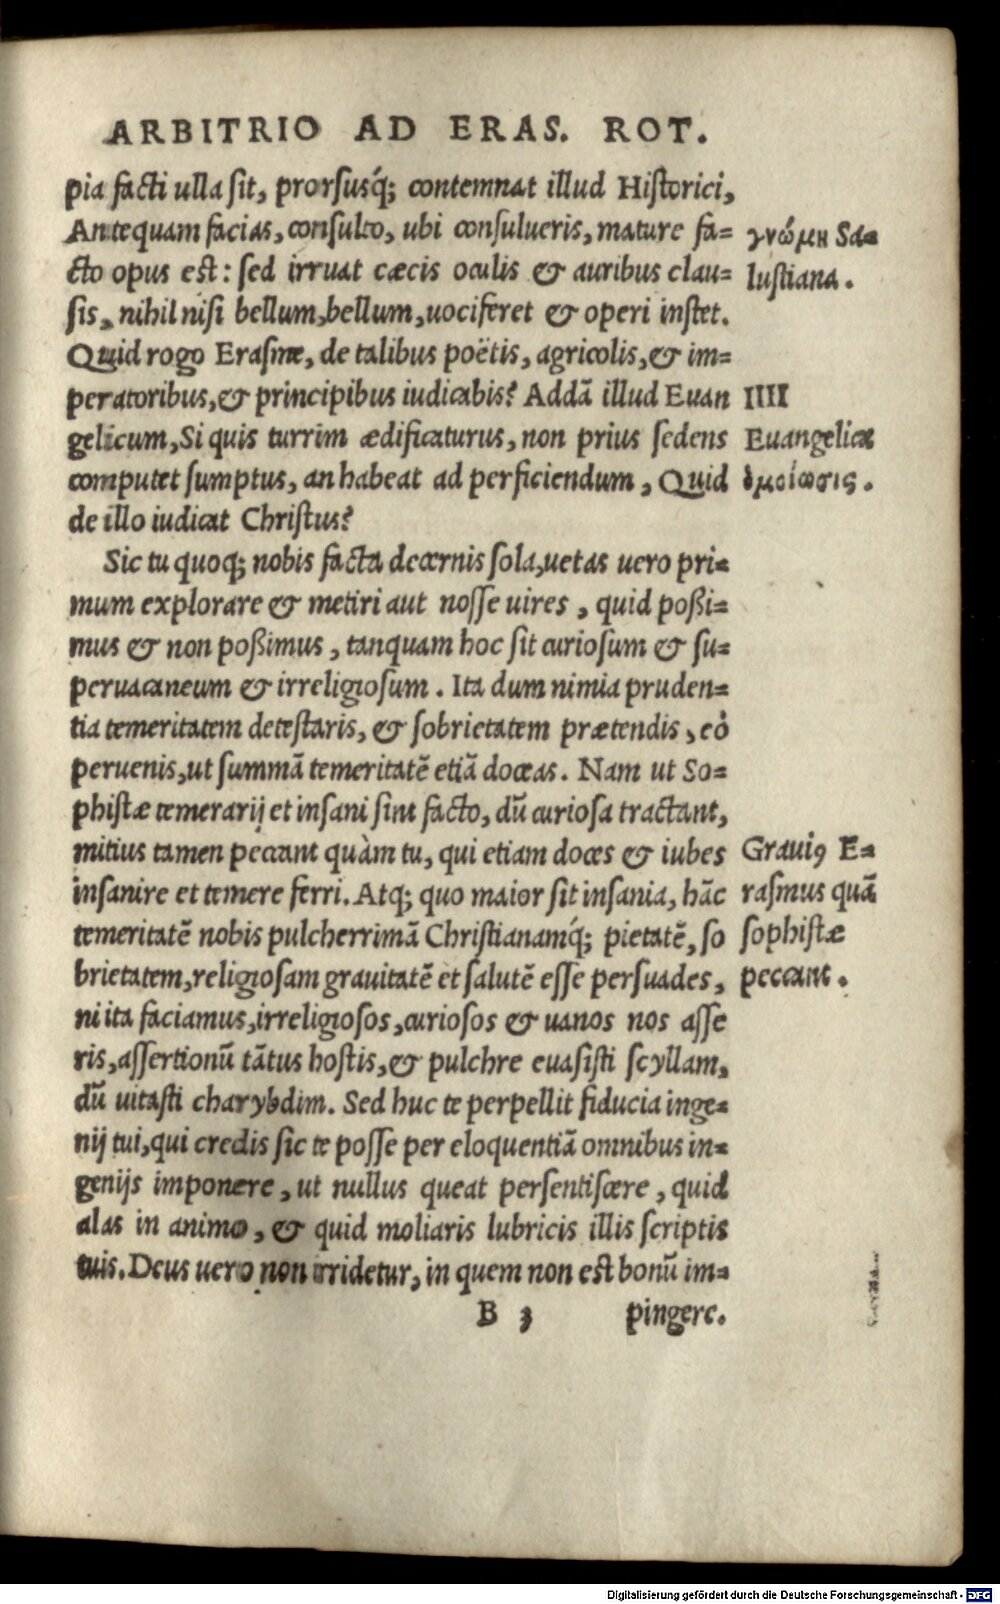 ARBITRIO AD ERAS. ROT.
pia facti ulla sit, prorsusq́; contemnat illud Historici,
Antequam facias, consulto, ubi consulueris, mature fa=
cto opus est: sed irruat cæcis oculis & auribus clau=
sis, nihil nisi bellum, bellum, uociferet & operi instet.
Quid rogo Erasme, de talibus poëtis, agricolis, & im=
peratoribus, & principibus iudicabis? Addā illud Euan
gelicum, Si quis turrim ædificaturus, non prius sedens
computet sumptus, an habeat ad perficiendum, Quid
de illo iudicat Christus?
γνώμη Sa=
lustiana.
IIII
Euangelicæ
ὁμοίωσις.
Sic tu quoq; nobis facta decernis sola, uetas uero pri=
mum explorare & metiri aut nosse uires, quid poßi=
mus & non poßimus, tanquam hoc sit curiosum & su=
peruacaneum & irreligiosum. Ita dum nimia pruden=
tia temeritatem detestaris, & sobrietatem prætendis, eò
peruenis, ut summā temeritatē etiā doceas. Nam ut So=
phistæ temerarij et insani sint facto, dū curiosa tractant,
mitius tamen peccant quàm tu, qui etiam doces & iubes
insanire et temere ferri. Atq; quo maior sit insania, hāc
temeritatē nobis pulcherrimā Christianamq́; pietatē, so
brietatem, religiosam grauitatē et salutē esse persuades,
ni ita faciamus, irreligiosos, curiosos & uanos nos asse
ris, assertionū tātus hostis, & pulchre euasisti scyllam,
dū uitasti charybdim. Sed huc te perpellit fiducia inge=
nij tui, qui credis sic te posse per eloquentiā omnibus in=
genijs imponere, ut nullus queat persentiscere, quid
alas in animo, & quid moliaris lubricis illis scriptis
tuis. Deus uero non irridetur, in quem non est bonū im=
Grauiꝰ E=
rasmus quā
sophistæ
peccant.
B 3 pingere.
Digitalisierung gefördert durch die Deutsche Forschungsgemeinschaft - DFG